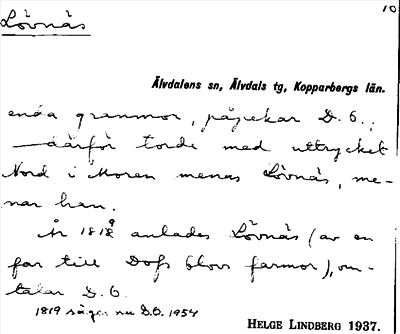 Lövnäs
10
Älvdalens sn, Älvdals tg, Kopparbergs län.
enda grannmor, påpekar D. O.;
– därför torde med uttrycket
Nord i Moren menas Lövnäs, me-
nar han.
År 1819 anlades Lövnäs (av en
far till Dofs blovs farmor), om-
talar D. O.
1819 säger nu D.O. 1954
HELGE LINDBERG 1937.